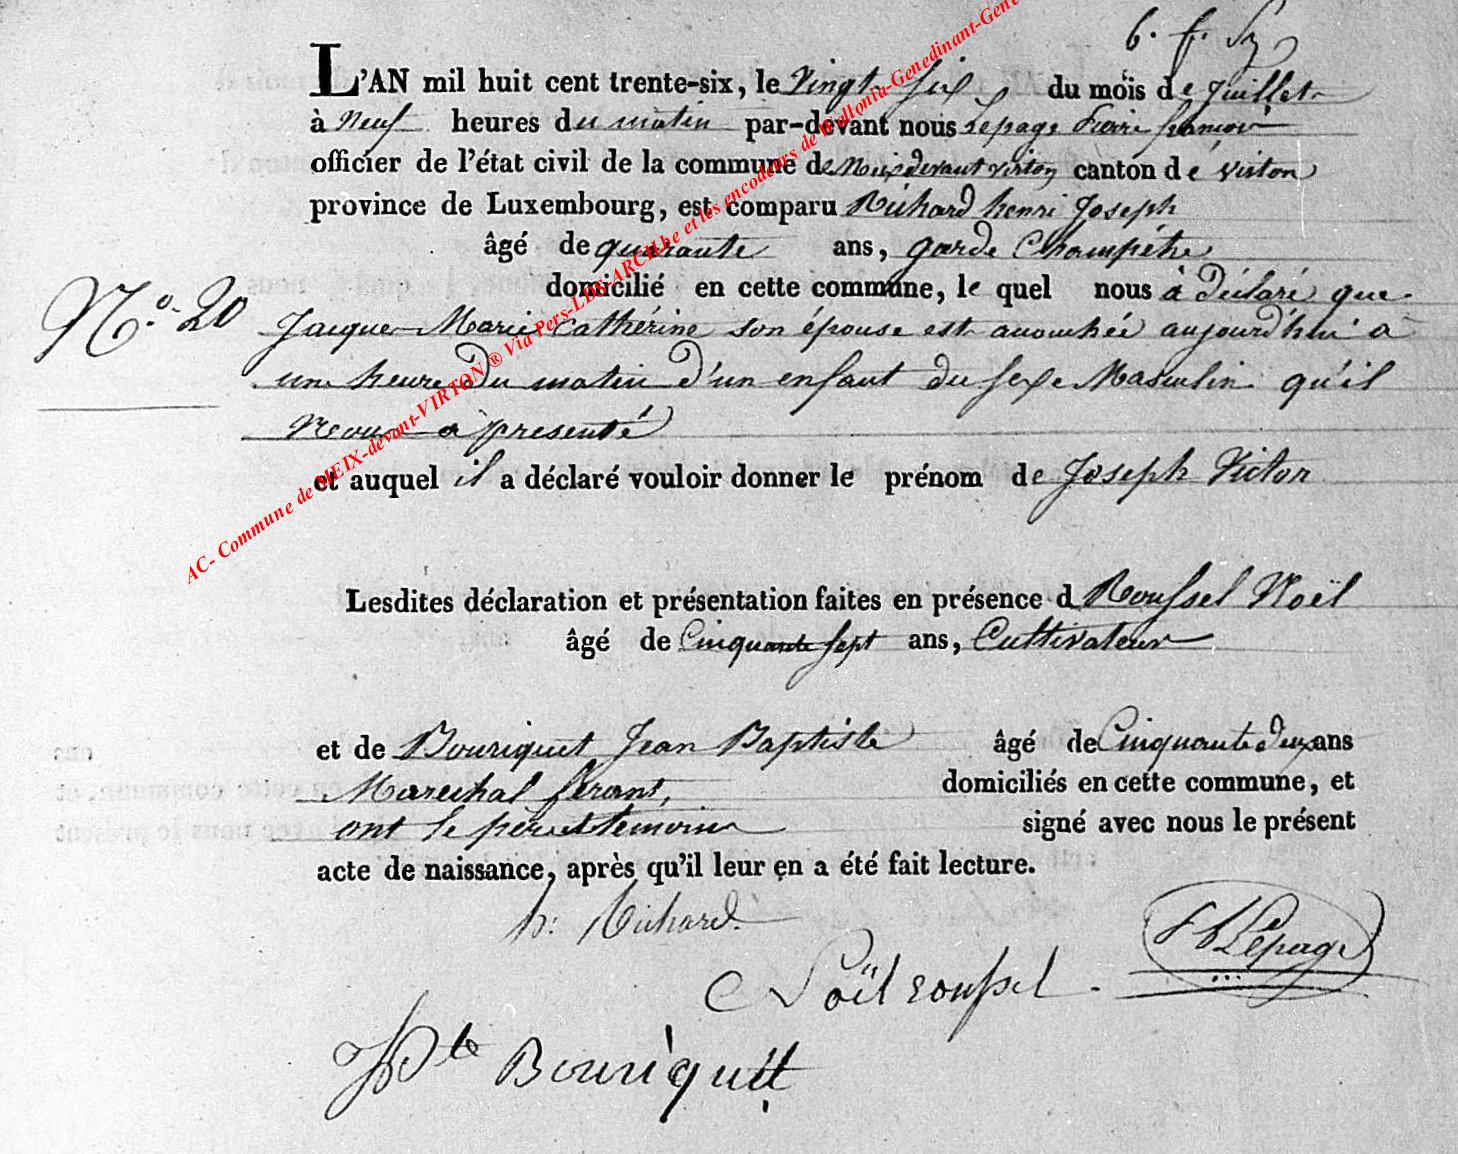 L'AN mil huit cent trente-six, le Vingt six du mois de Juillet
à Neuf heures du matin par-devant nous Lepage Pierre françois
officier de l'état civil de la commune de Meix devant virton canton de virton
province de Luxembourg, est comparu Richard henri Joseph
âgé de quarante ans, garde Champêtre
domicilié en cette commune, le quel nous à déclaré que
N.° 20
Jacques Marie Cathérine son épouse est accouchée aujourd'hui à
une heure du matin d'un enfant du sexe Masculin qu'il
Nous a présenté
et auquel il a déclaré vouloir donner le prénom de Joseph Victor
Lesdites déclaration et présentation faites en présence d Roussel Noël
âgé de Cinquante sept ans, Cultivateur
et de Bouriquet Jean Baptiste âgé de Cinquante deux ans
Marechal férant, domiciliés en cette commune, et
ont le père et temoins signé avec nous le présent
acte de naissance, après qu'il leur en a été fait lecture.
h: Richard.
Lepage
Noël roussel
Bouriquet
AC- Commune de MEIX-devant-VIRTON ® Via Pers-LDS-ARCH.be et les encodeurs de Wallonia-Genedinant-Gene